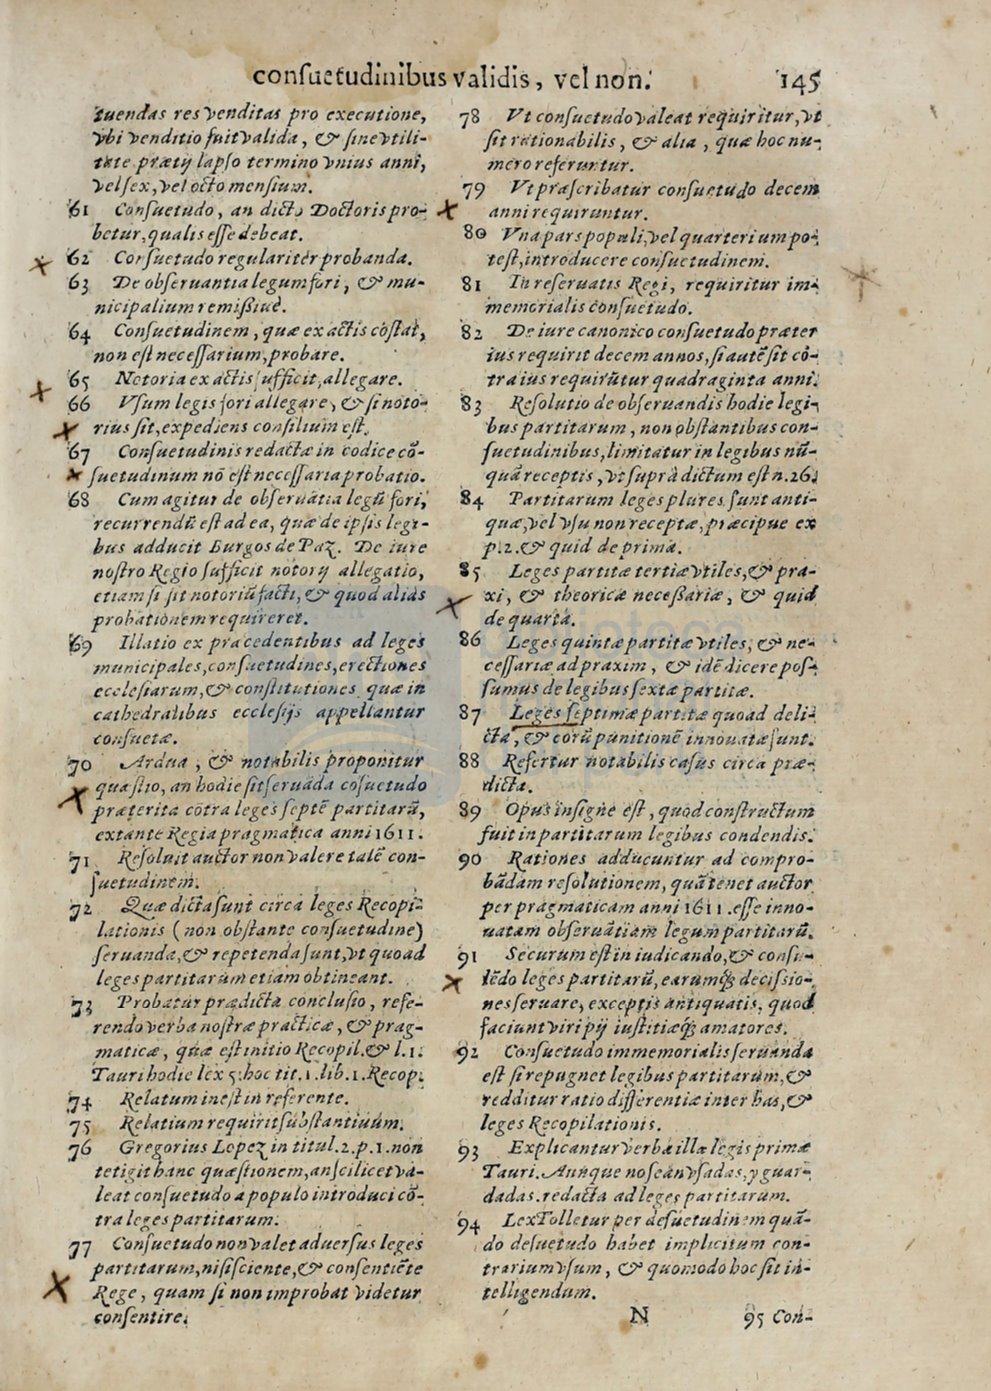 consuetudinibus validis, vel non. 145
tuendas res venditas pro executione,
vbi venditio fuit valida, & sine vtili-
tate prætij lapso termino vnius anni,
vel sex, vel octo mensium.
61 Consuetudo, an dicto Doctoris pro-
betur, qualis esse debeat.
62 Consuetudo regularitèr probanda.
63 De obseruantia legum fori, & mu-
nicipalium remissiuè.
64 Consuetudinem, quæ ex actis cõstat,
non est necessarium, probare.
65 Notoria ex actis sufficit, allegare.
66 Vsum legis fori allegare, & si noto-
rius sit, expediens consilium est.
67 Consuetudinis redactæ in codice cõ-
suetudinum nõ est necessaria probatio.
68 Cum agitur de obseruãtia legũ fori,
recurrendũ est ad ea, quæ de ipsis legi-
bus adducit Burgos de Paz. De iure
nostro Regio sufficit notorij allegatio,
etiam si sit notoriũ facti, & quod aliàs
probationem requireret.
69 Illatio ex præcedentibus ad leges
municipales, consuetudines, erectiones
ecclesiarum, & constitutiones quæ in
cathedralibus ecclesijs appellantur
consuetæ.
70 Ardua, & notabilis proponitur
quæstio, an hodie sit seruãda cõsuetudo
præterita cõtra leges septẽ partitarũ,
extante Regia pragmatica anni 1611.
71 Resoluit auctor non valere talẽ con-
suetudinem.
72 Quæ dicta sunt circa leges Recopi-
lationis (non obstante consuetudine)
seruanda, & repetenda sunt, vt quoad
leges partitarum etiam obtineant.
73 Probatur prædicta conclusio, refe-
rendo verba nostræ practicæ, & prag-
maticæ, quæ est initio Recopil. & l. 1.
Tauri hodie lex 5. hoc tit. 1. lib. 1. Recop.
74 Relatum inest in referente.
75 Relatium requirit substantiuum.
76 Gregorius Lopez in titul. 2. p. 1. non
tetigit hanc quæstionem, an scilicet va-
leat consuetudo a populo introduci cõ-
tra leges partitarum.
77 Consuetudo non valet aduersus leges
partitarum, nisi sciente, & consentiẽte
Rege, quam si non improbat videtur
consentire.
78 Vt consuetudo valeat requiritur, vt
sit rationabilis, & alia, quæ hoc nu-
mero referuntur.
79 Vt præscribatur consuetudo decem
anni requiruntur.
80 Vna pars populi, vel quarterium po-
test, introducere consuetudinem.
81 In reseruatis Regi, requiritur im-
memorialis consuetudo.
82 De iure canonico consuetudo præter
ius requirit decem annos, si autẽ sit cõ-
tra ius requirũtur quadraginta anni.
83 Resolutio de obseruandis hodie legi-
bus partitarum, non obstantibus con-
suetudinibus, limitatur in legibus nũ-
quã receptis, vt suprà dictum est n. 26.
84 Partitarum leges plures sunt anti-
quæ, vel vsu non receptæ, præcipue ex
p. 2. & quid de prima.
85 Leges partitæ tertiæ vtiles, & pra-
xi, & theoricæ necessariæ, & quid
de quarta.
86 Leges quintæ partitæ vtiles, & ne-
cessariæ ad praxim, & idẽ dicere pos-
sumus de legibus sextæ partitæ.
87 Leges septimæ partitæ quoad deli-
cta, & eorũ punitionẽ innouatæ sunt.
88 Refertur notabilis casus circa præ-
dicta.
89 Opus insigne est, quod constructum
fuit in partitarum legibus condendis.
90 Rationes adducuntur ad compro-
bãdam resolutionem, quã tenet auctor
per pragmaticam anni 1611. esse inno-
uatam obseruãtiam legum partitarũ.
91 Securum est in iudicando, & consu-
lẽdo leges partitarũ, earumq; decissio-
nes seruare, exceptis antiquatis, quod
faciunt viri pij iustitiæq; amatores.
92 Consuetudo immemorialis seruanda
est si repugnet legibus partitarum, &
redditur ratio differentiæ inter has, &
leges Recopilationis.
93 Explicantur verba illa legis primæ
Tauri. Aunque no seàn vsadas, y guar-
dadas. redacta ad leges partitarum.
94 Lex Tolletur per desuetudinem quã-
do desuetudo habet implicitum con-
trarium vsum, & quomodo hoc sit in-
telligendum.
N 95 Con-